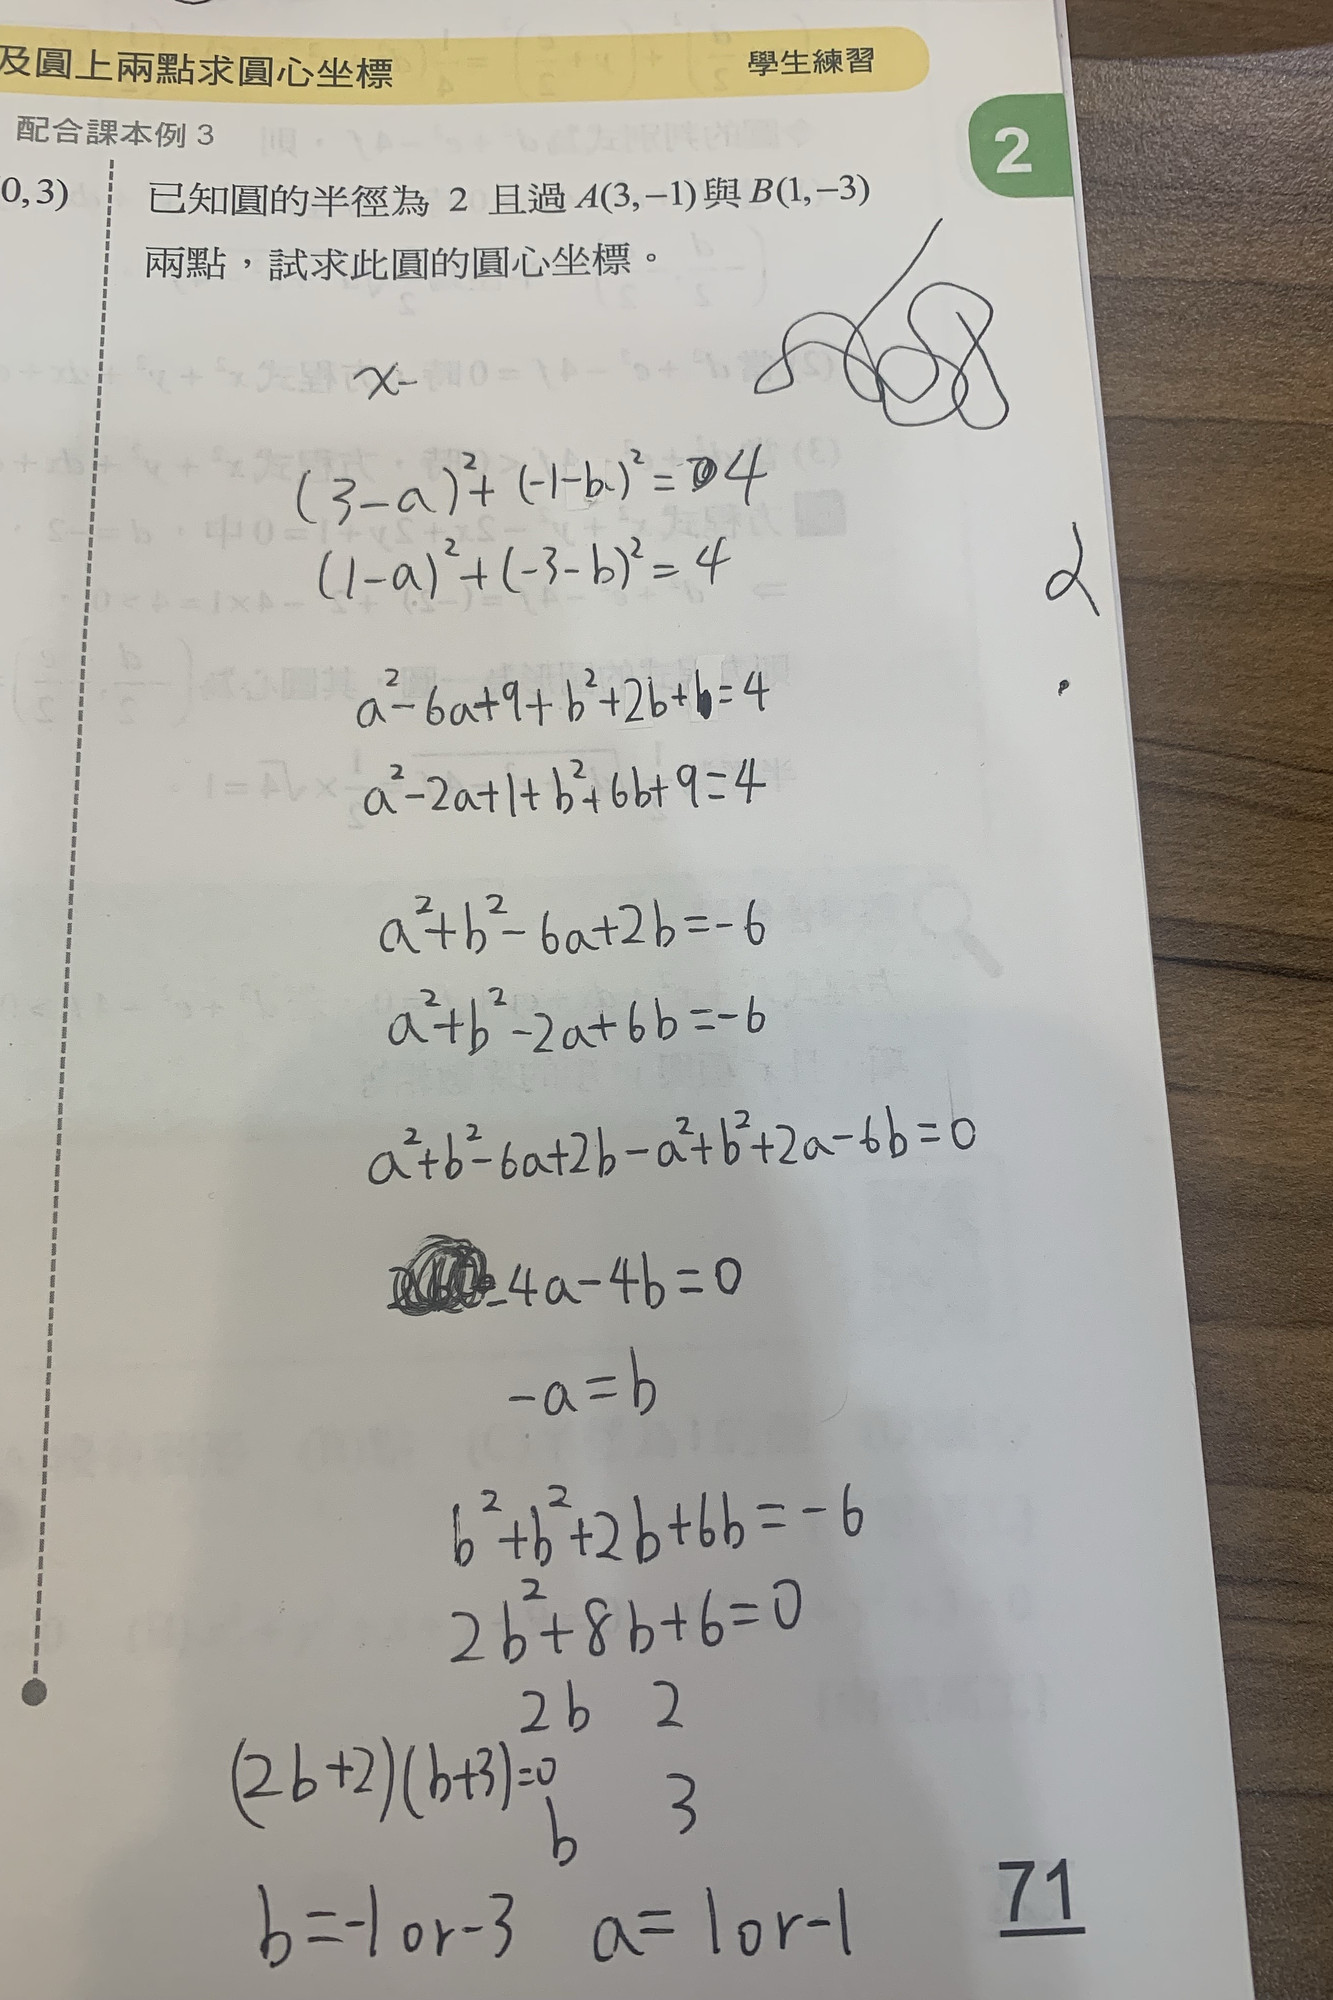 及圓上兩點求圓心坐標 學生練習
配合課本例 3
2
0, 3)
已知圓的半徑為 2 且過 A(3, −1) 與 B(1, −3)
兩點，試求此圓的圓心坐標。
x-
(3-a)²+(-1-b)²=4
(1-a)²+(-3-b)²=4
a²-6a+9+b²+2b+1=4
a²-2a+1+b²+6b+9=4
a²+b²-6a+2b=-6
a²+b²-2a+6b=-6
a²+b²-6a+2b-a²+b²+2a-6b=0
-4a-4b=0
-a=b
b²+b²+2b+6b=-6
2b²+8b+6=0
2b 2
(2b+2)(b+3)=0
b 3
b=-1 or -3 a=1 or -1
71